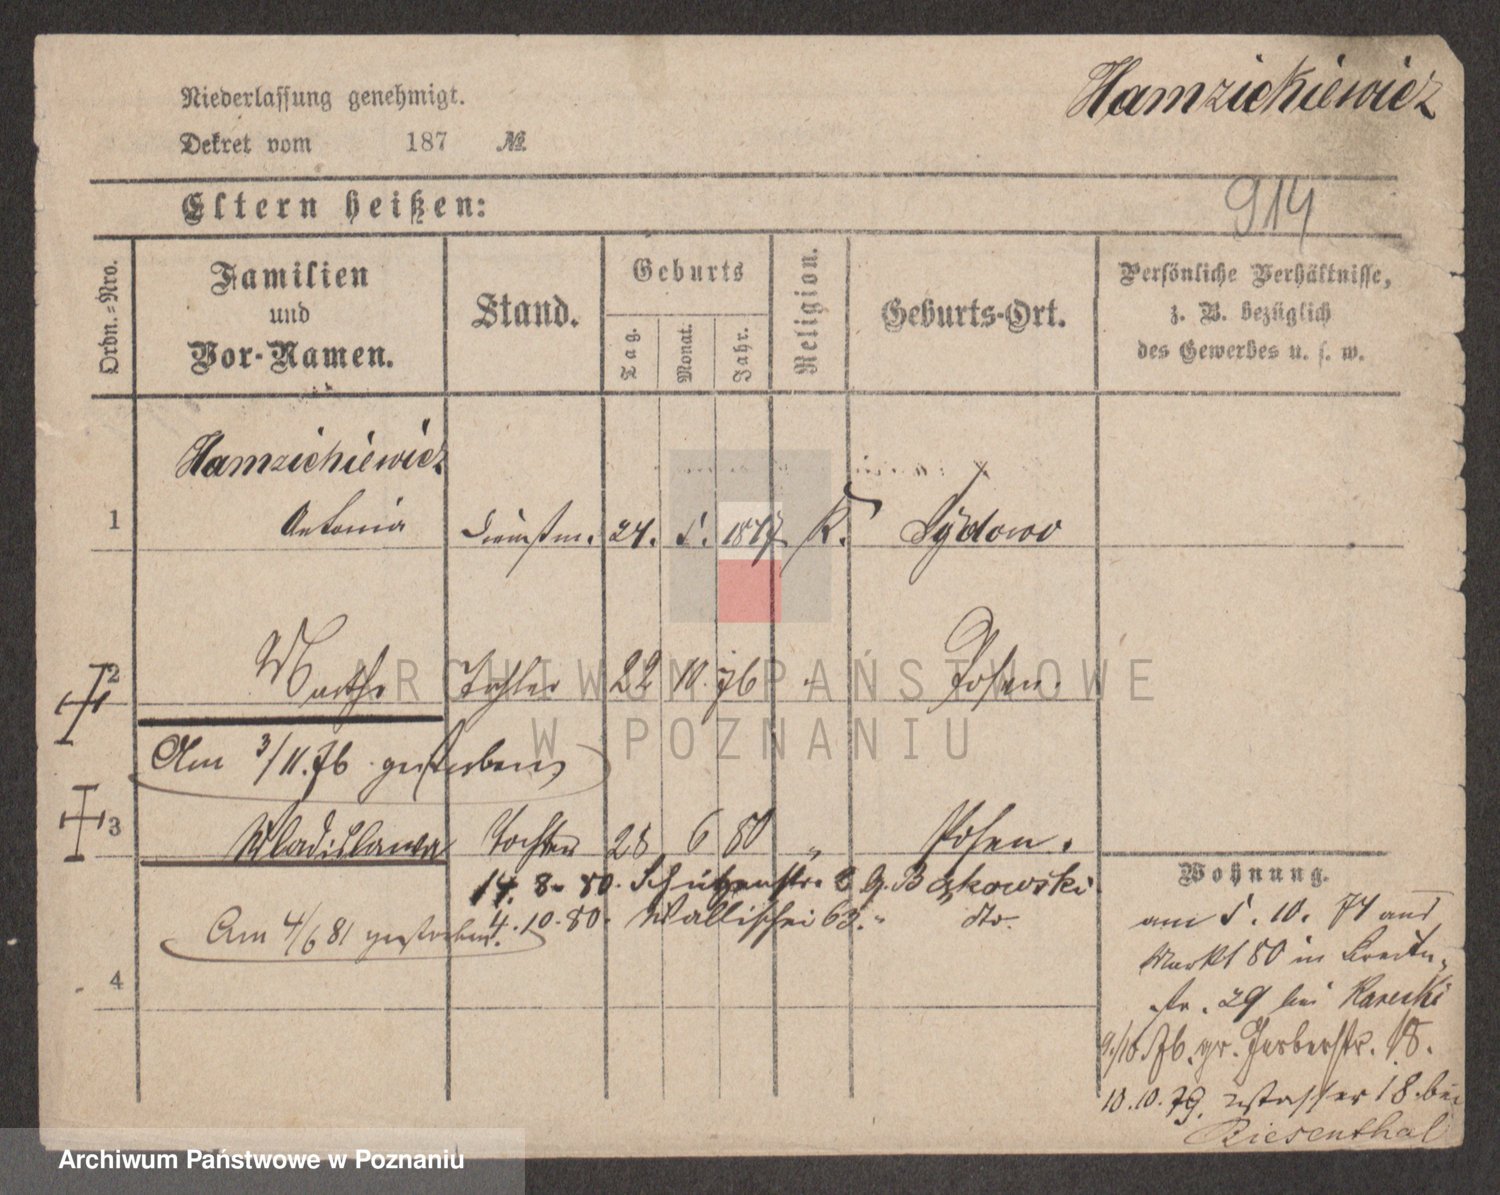 Hamzickiewicz
Niederlassung genehmigt.
Dekret vom 187 №
914
Eltern heißen:
Ordn.-Nro.
Familien und Vor-Namen.
Stand.
Geburts
Tag. Monat. Jahr.
Religion.
Geburts-Ort.
Persönliche Verhältnisse, z. B. bezüglich des Gewerbes u. s. w.
Hamzichiewicz
1 Antonia Dienstm. 24. 5. 1847 K. Lydowo
2 Martha Tochter 22 10. 76 " Posen.
Am 3/11.76 gestorben
3 Wladislawa Tochter 28 6 80 " Posen.
14. 8. 80. Schützenstr.
4.10.80. Wallischei 63. " dto.
Am 4/6 81 gestorben.
4
Wohnung.
am 5. 10. 74 aus
Markt 80 in Breite-
str. 29 bei
9/10.76. gr. Gerberstr. 18.
10.10.79. Wasser 18. bei
Riesenthal
ARCHIWUM PAŃSTWOWE
W POZNANIU
Archiwum Państwowe w Poznaniu